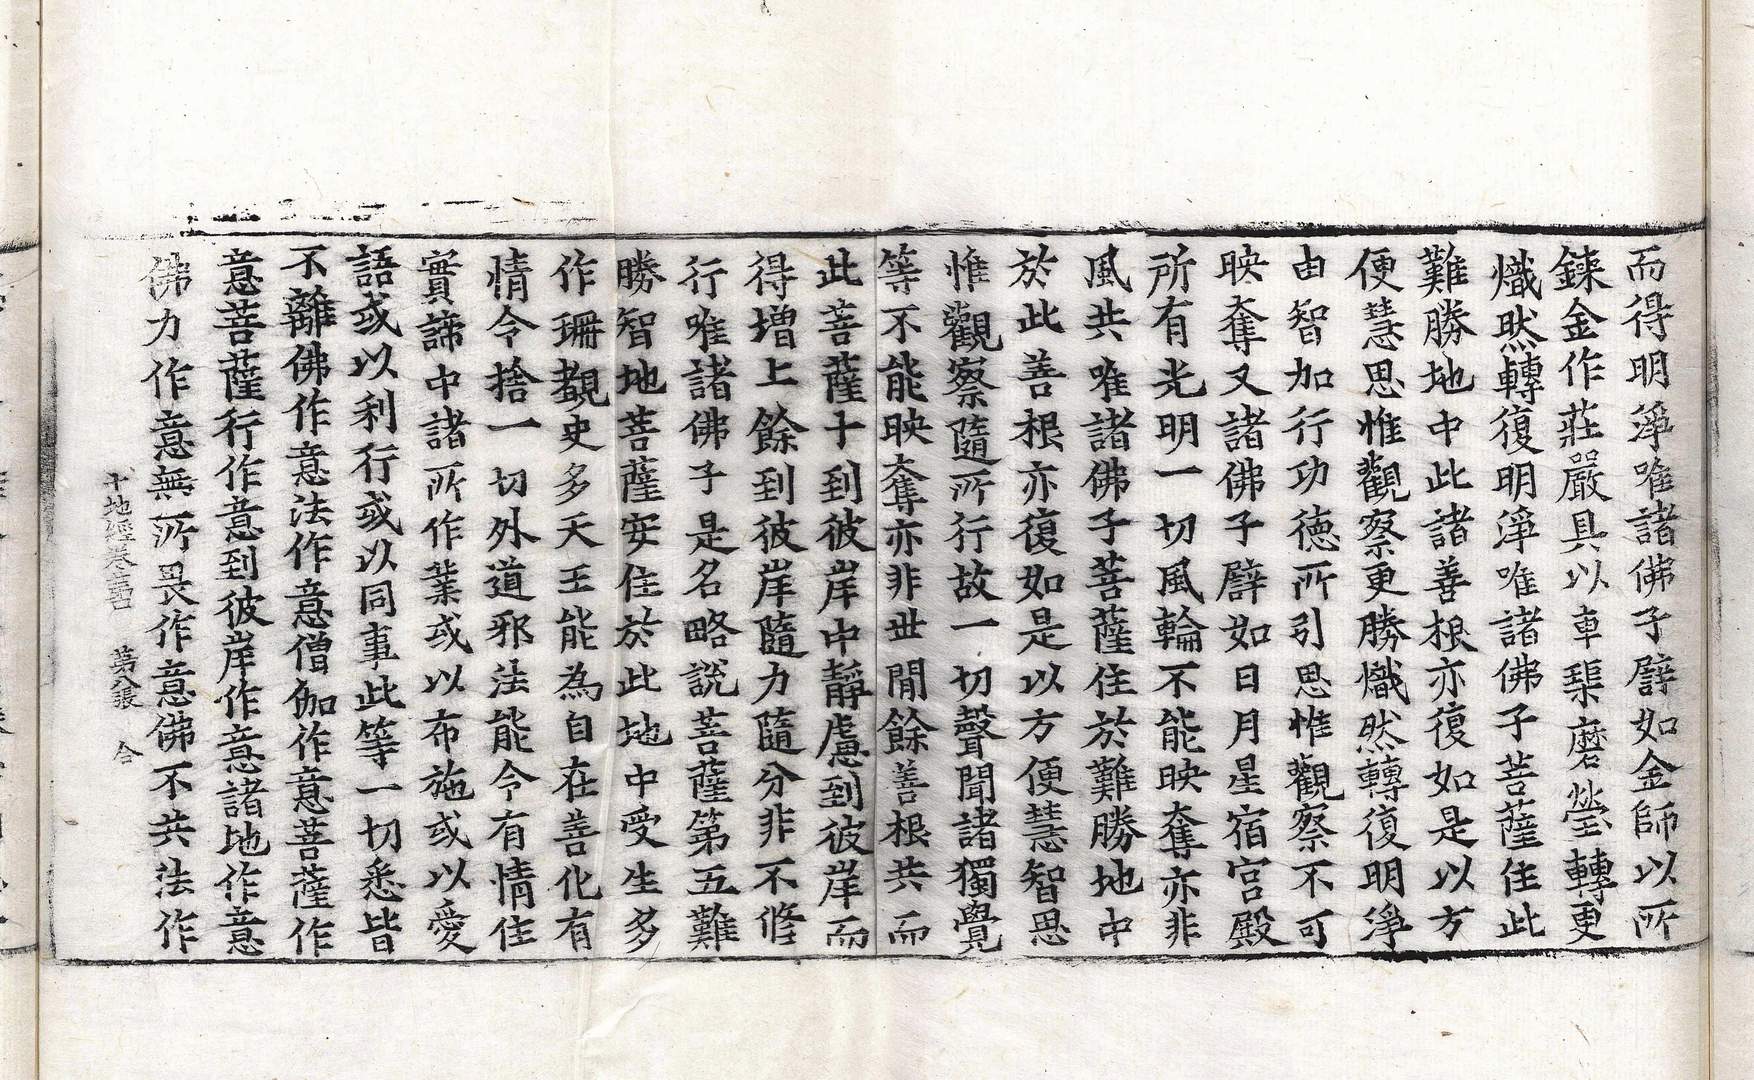 而得明淨唯諸佛子譬如金師以所
鍊金作莊嚴具以車𤦲磨瑩轉更
熾然轉復明淨唯諸佛子菩薩住此
難勝地中此諸善根亦復如是以方
便慧思惟觀察更勝熾然轉復明淨
由智加行功德所引思惟觀察不可
映奪又諸佛子譬如日月星宿宮殿
所有光明一切風輪不能映奪亦非
風共唯諸佛子菩薩住於難勝地中
於此善根亦復如是以方便慧智思
惟觀察隨所行故一切聲聞諸獨覺
等不能映奪亦非世間餘善根共而
此菩薩十到彼岸中靜慮到彼岸而
得增上餘到彼岸隨力隨分非不修
行唯諸佛子是名略說菩薩第五難
勝智地菩薩安住於此地中受生多
作珊覩史多天王能為自在善化有
情令捨一切外道邪法能令有情住
實諦中諸所作業或以布施或以愛
語或以利行或以同事此等一切悉皆
不離佛作意法作意僧伽作意菩薩作
意菩薩行作意到彼岸作意諸地作意
佛力作意無所畏作意佛不共法作
十地經卷四 第八張 合